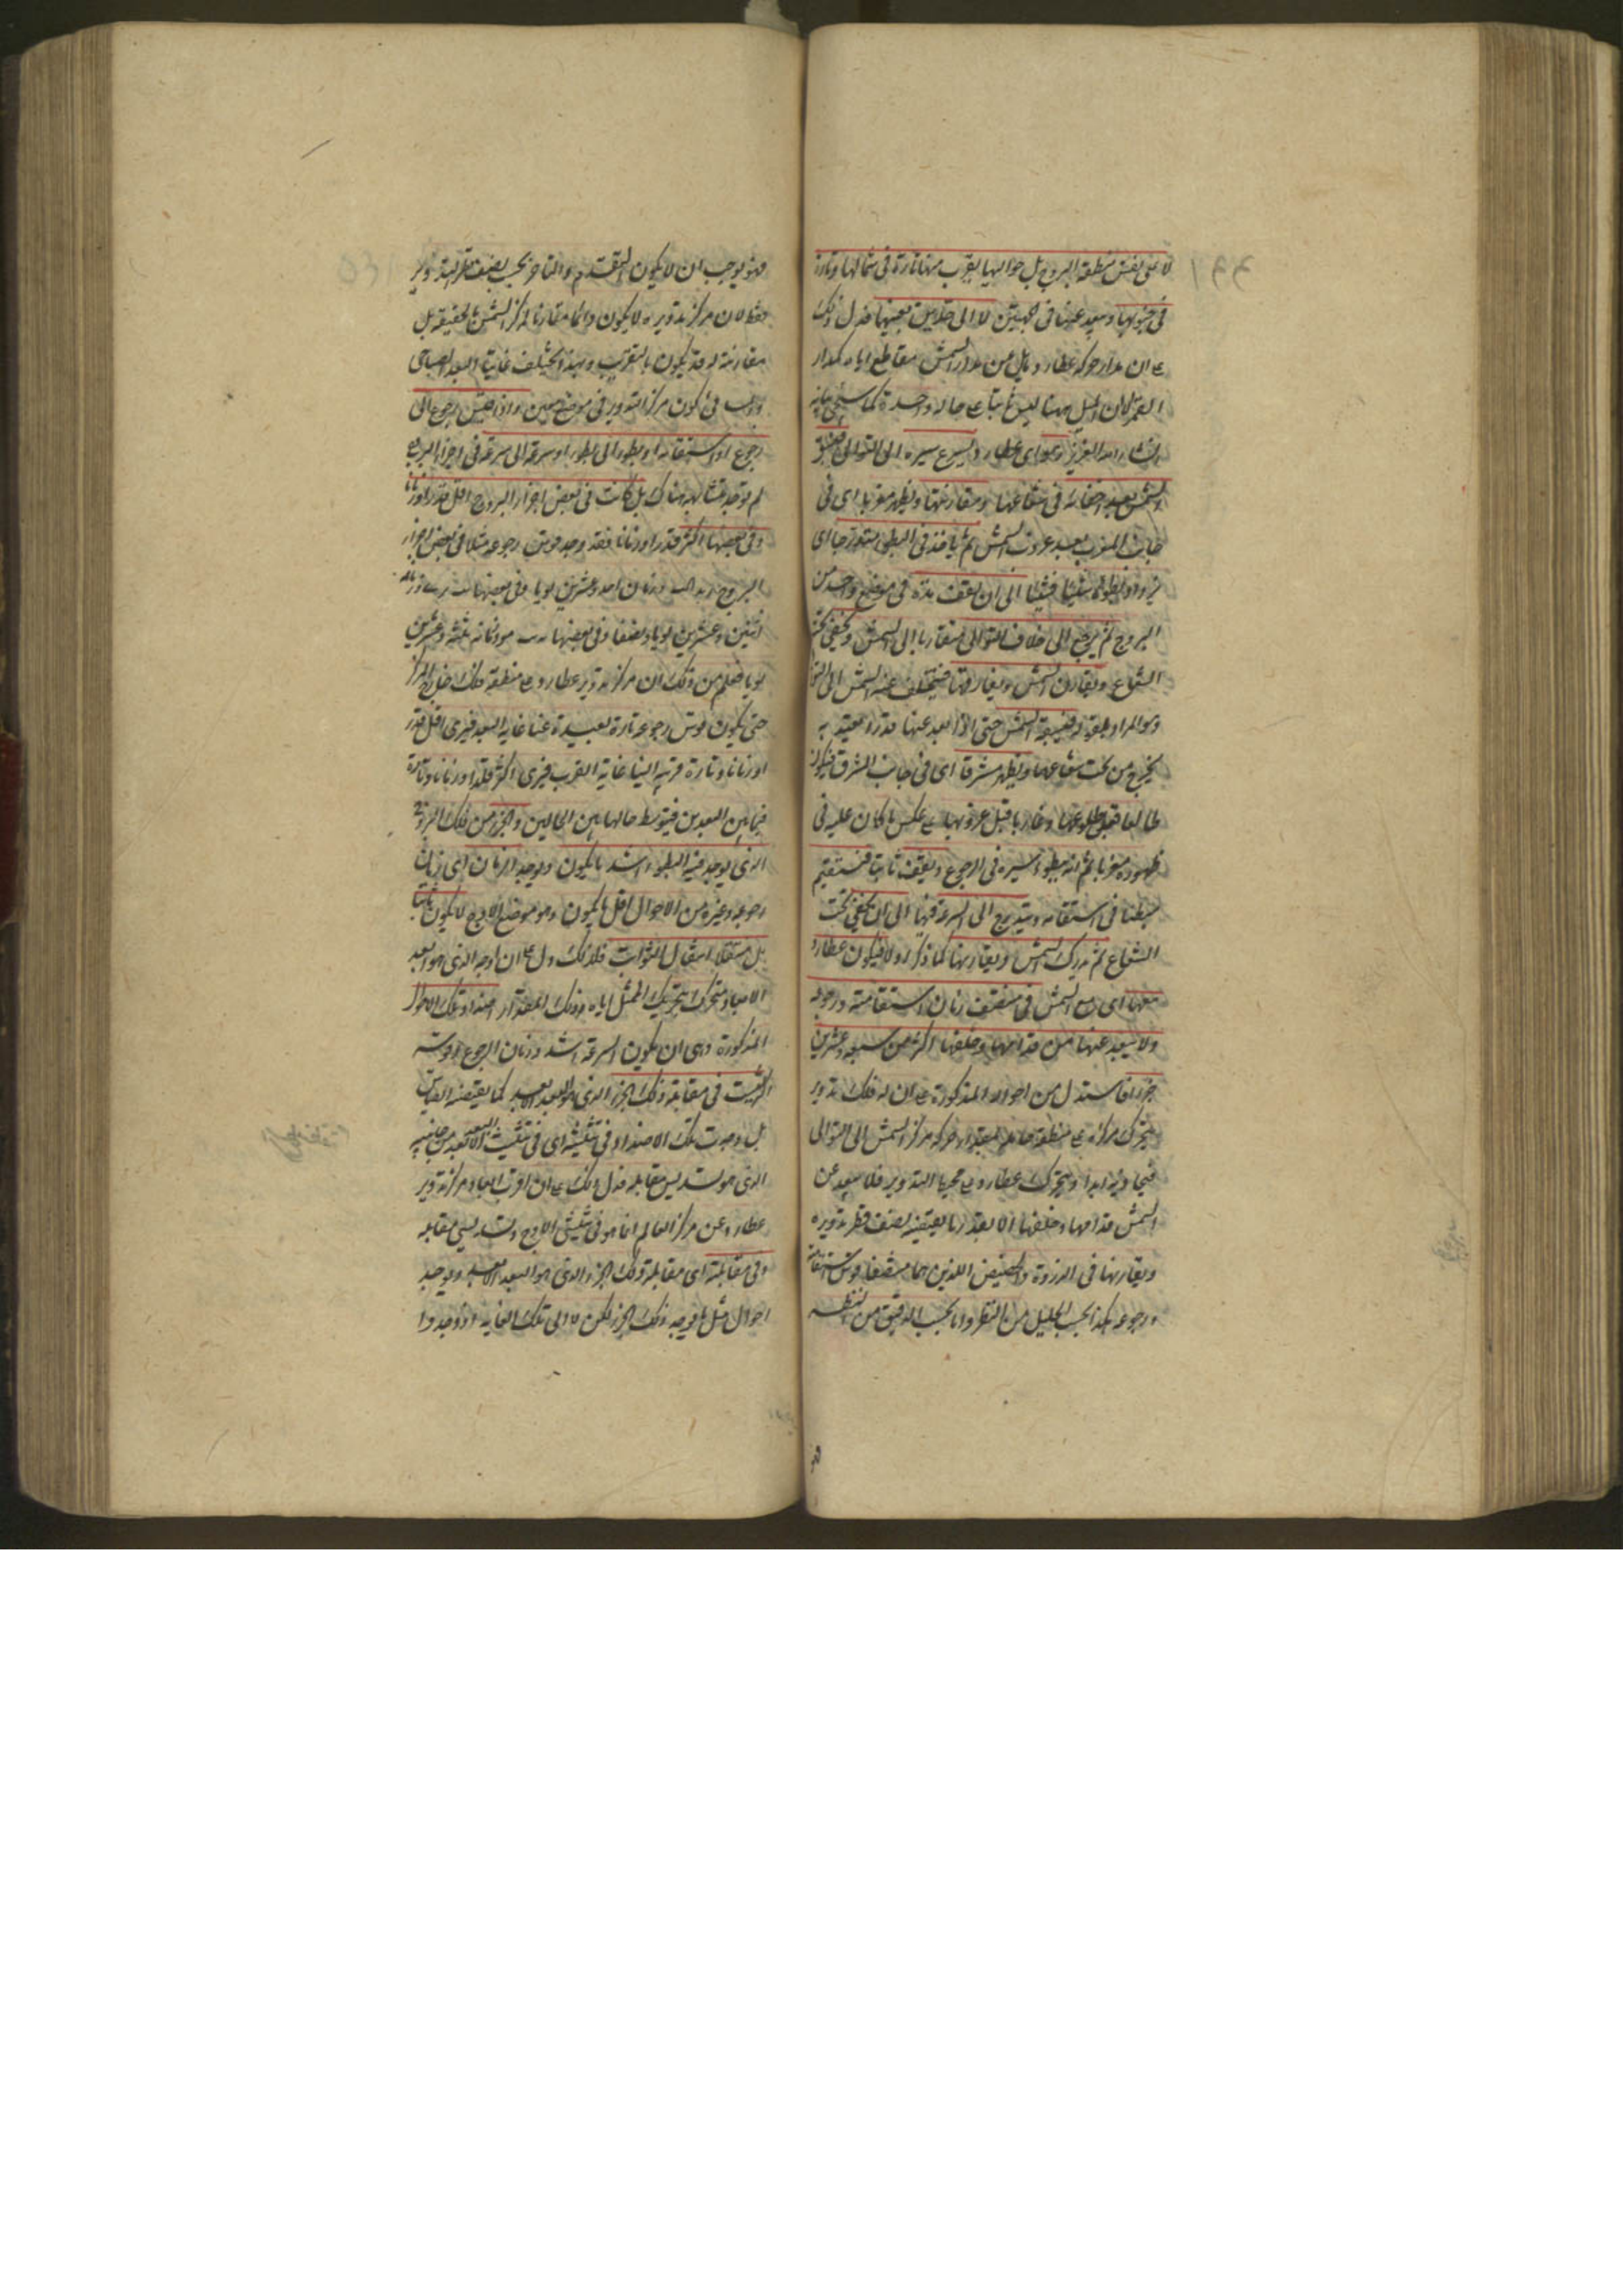 لا على نفس منطقة البروج بل حواليها يقرب منها تارة في شمالها وتارة
في جنوبها ويبعد عنها في الجهتين لا الى حد ين بعينهما فدل ذلك
على ان مدار حركة عطارد مايل عن مدار الشمس مقاطع اياه كمدار
القمر الا ان الميل ههنا ليس ثابتا على حالة واحدة كما سيجئ بيانه
انشاء الله العزيز وهو اى عطارد يسرع سيره الى التوالى فيسبق
الشمس بعد اختفائه في شعاعها ومقارنتها ويظهر مغربا اى في
جانب المغرب بعد غروب الشمس ثم ياخذ في البطئ متدرجا اى
يزداد بطؤه شيئا فشيئا الى ان يقف مدة في موضع واحد من
البروج ثم يرجع الى خلاف التوالى متقاربا الى الشمس ويختفى تحت
الشعاع ويقارن الشمس ويفارقها فيتخلف عنه الشمس الى التوالى
وهو المراد بقوله فيسبقه الشمس حتى اذا بعد عنها قدرا يعتد به
يخرج من تحت شعاعها ويظهر مشرقا اى في جانب المشرق فيكون
طالعا قبل طلوعها وغاربا قبل غروبها على عكس ما كان عليه في
ظهوره مغربا ثم انه يبطؤ سيره في الرجوع ويقف ثانيا فيستقيم
مبطئا في استقامته ويتدرج الى السرعة فيها الى ان يختفى تحت
الشعاع ثم يدرك الشمس ويقارنها كما ذكر اولا فيكون عطارد
معها اى مع الشمس في منتصف زمان استقامته ورجوعه
ولا يبعد عنها من قدامها وخلفها اكثر من سبعة وعشرين
جزءا فاستدل من احواله المذكورة على ان له فلك تدوير
يتحرك مركزه على منطقة حامله بمقدار حركة مركز الشمس الى التوالى
فيحاذيه ابدا ويتحرك عطارد على محيط التدوير فلا يبعد عن
الشمس قدامها وخلفها الا بقدر ما يقتضيه نصف قطر تدويره
ويقارنها في الذروة والحضيض اللذين هما منتصفا قوس استقامته
ورجوعه هكذا بحسب الجليل من النظر واما بحسب الدقيق من النظر
فهو يوجب ان لا يكون التقدم والتاخر بحسب نصف قطر التدوير
فقط لان مركز تدويره لا يكون دائما مقارنا لمركز الشمس بالحقيقة بل
مقارنته له قد يكون بالتقريب وبهذا يختلف غايتا البعد الصباحى
في كون مركز التدوير في موضع معين واذا قيس رجوع الى
رجوع او استقامة او بطؤ الى بطؤ او سرعة الى سرعة في اجزاء البروج
لم توجد متشابهة هناك بل كانت في بعض اجزاء البروج اقل قدرا وزمانا
وفي بعضها اكثر قدرا وزمانا فقد وجد قوس رجوعه مثلا في بعض اجزاء
البروج وزمانه احد وعشرين يوما وفي بعضها وزمانه
اثنين وعشرين يوما ونصفا وفي بعضها وزمانه ثلثة وعشرين
يوما فعلم من ذلك ان مركز تدوير عطارد على منطقة فلك خارج المركز
حتى يكون قوس رجوعه تارة بعيدة عنا غاية البعد فيرى اقل قدرا
وزمانا وتارة قريبة الينا غاية القرب فيرى اكثر قدرا وزمانا وتارة
فيما بين البعدين فيتوسط حالها بين الحالين والجزء من فلك البروج
الذى يوجد فيه البطؤ اشد ما يكون ويوجد الزمان اى زمان
رجوعه وغيره من الاحوال اقل ما يكون وهو موضع الاوج لا يكون ثابتا
بل منتقلا انتقال الثوابت فلذلك دل على ان اوجه الذى هو البعد
الابعد متحرك بتحريك الممثل اياه ذلك المقدار اضداد تلك الاحوال
المذكورة وهى ان يكون السرعة اشد وزمان الرجوع وقوسه
اكثر ليست في مقابلة ذلك الجزء الذى هو البعد الابعد كما يقتضيه القياس
بل وجدت تلك الاضداد في تثليثه اى في تثليث البعد الابعد من جانبيه
الذى هو تسديس مقابله فدل ذلك على ان اقرب ابعاد مركز تدوير
عطارد عن مركز العالم انما هو في تثليثى الاوج وتسديسى مقابله
وفي مقابلته اى مقابلة ذلك الجزء الذى هو البعد الابعد ويوجد
احوال مثل ما يوجد في ذلك الجزء لكن لا الى تلك الغاية اذ وجدوا